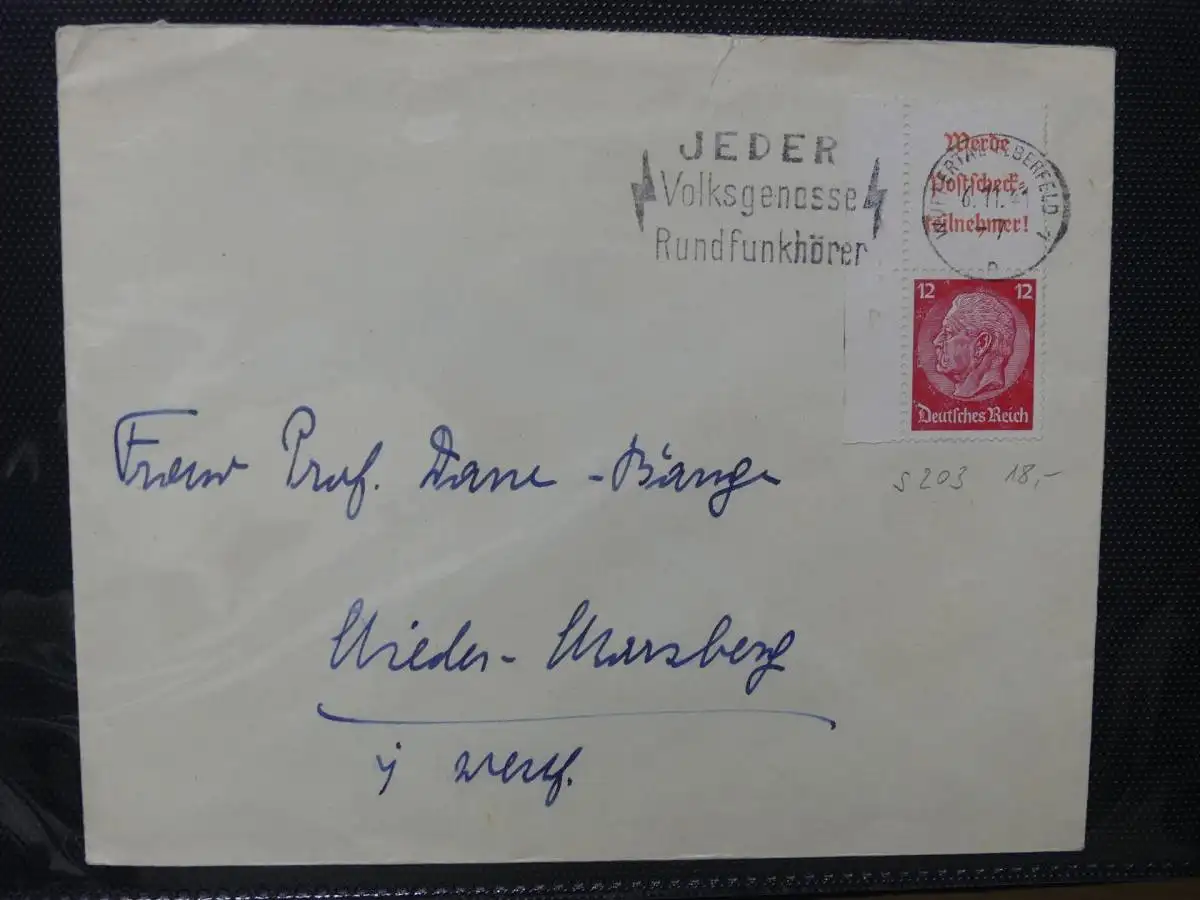 JEDER
Volksgenosse
Rundfunkhörer
Werde
Postscheck-
teilnehmer!
WUPPERTAL-ELBERFELD 1
6.11.
12 12
Deutsches Reich
S 203 18,-
Frau Prof. Dane - Bänge
Nieder-Marsberg
i/ Westf.